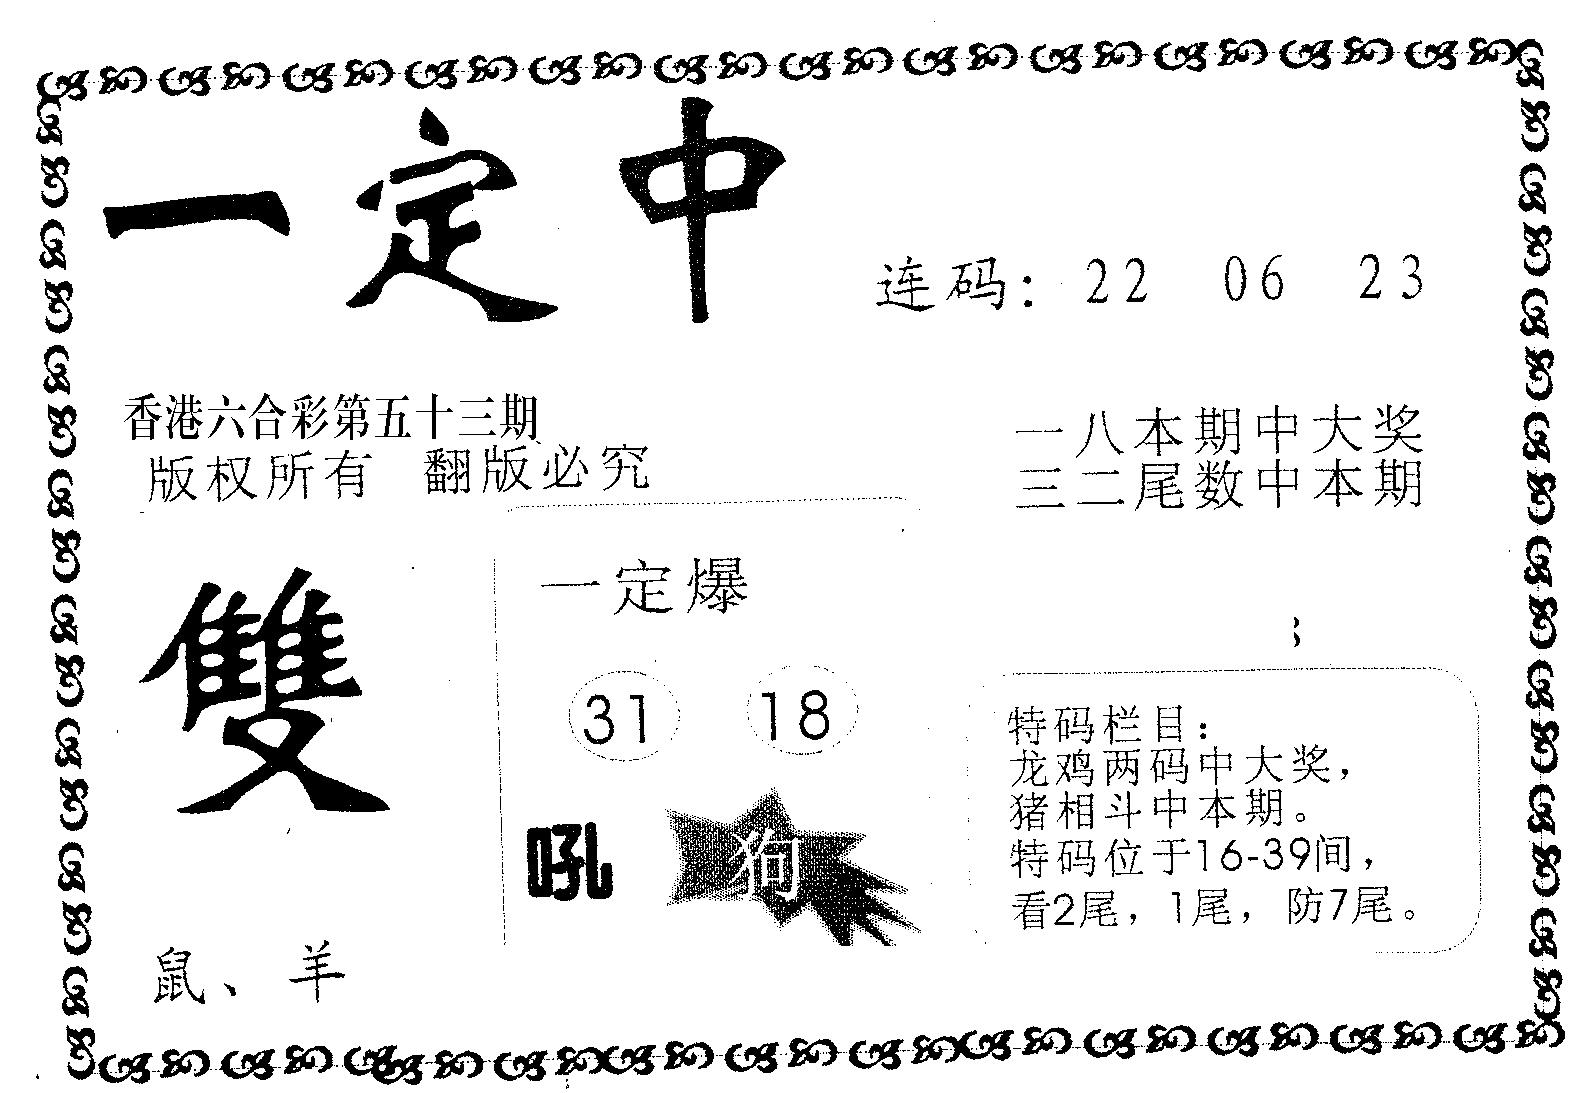 一定中
连码：22 06 23
香港六合彩第五十三期
版权所有 翻版必究
一八本期中大奖
三二尾数中本期
雙
鼠、羊
一定爆
31 18
吼 狗
特码栏目：
龙鸡两码中大奖，
猪相斗中本期。
特码位于16-39间，
看2尾，1尾，防7尾。